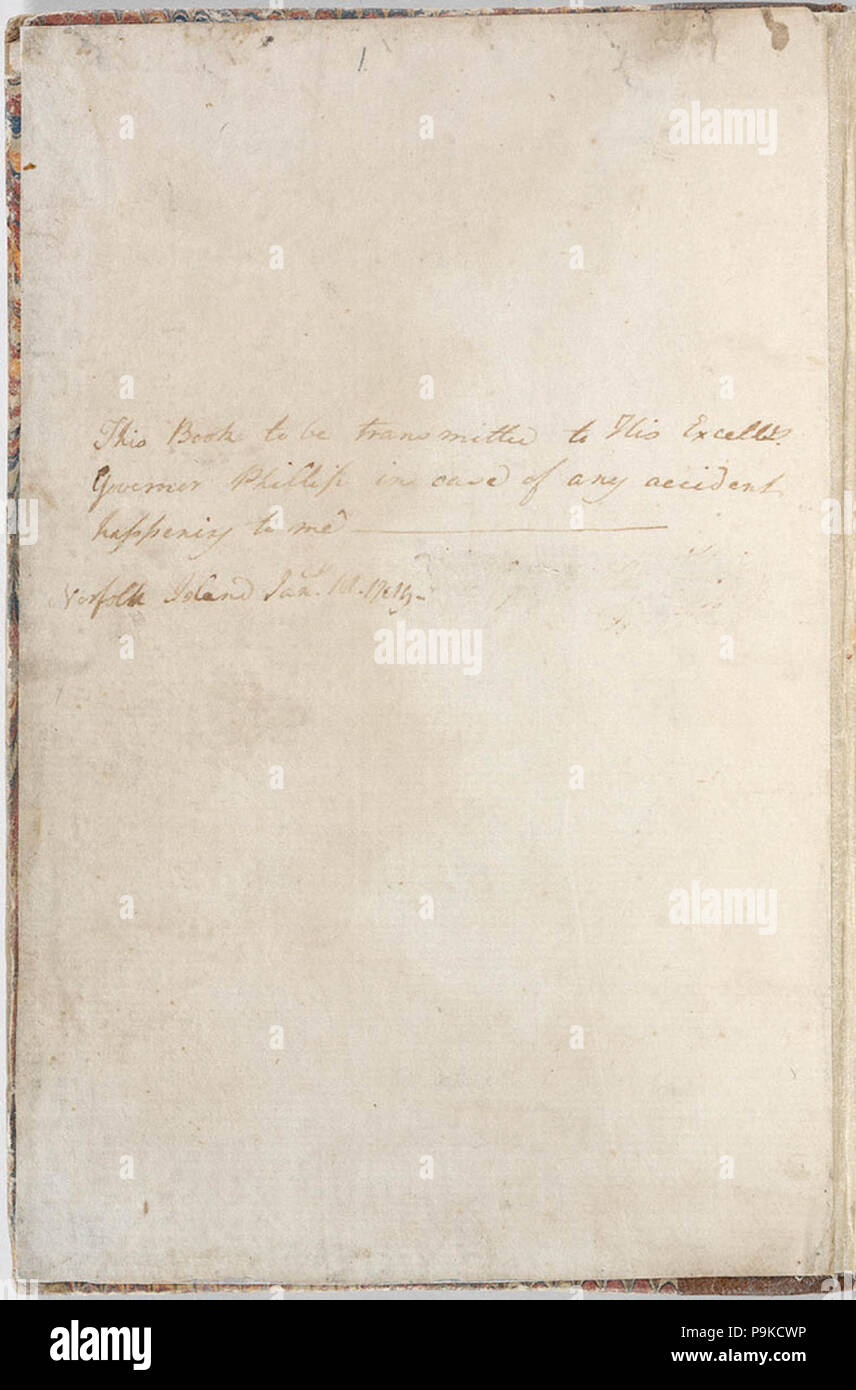 1
This Book to be transmitted to His Excelly.
Governor Phillip in case of any accident
happening to me
Norfolk Island Jany. 1st. 1789-
alamy
Image ID: P9KCWP
www.alamy.com